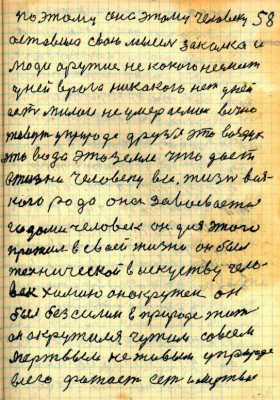 поэтому она этому человеку 58
оставила свою мысль закалка и
люди другие не кого не имеит
у ней врага никакого нет у ней
есть милаи не умераемаи вечно
живут у природе друзья это воздух
это вода это земле что дает
в жизни человеку все. жизн вся-
кого рода она завоевается
годами человек он для этого
прожил в своей жизни он был
технической в искуству чело-
век химию он окружен он
был без силин в природе жит
он окружился чужим совсем
мертвым не живым у природе
всего фатает ест и мертвое